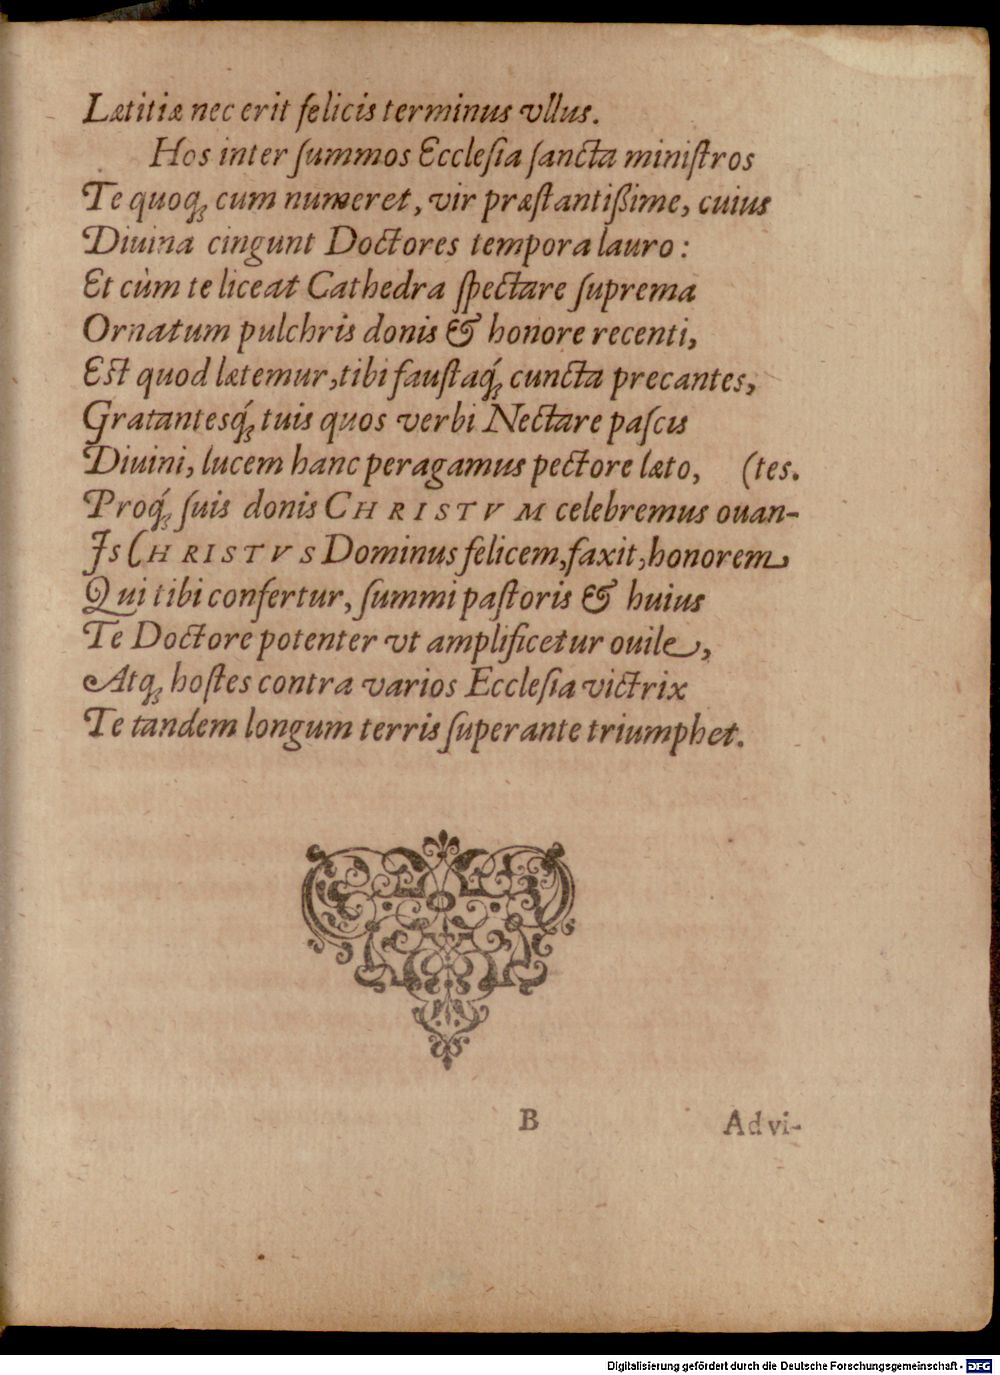 Lætitiæ nec erit felicis terminus vllus.
Hos inter ſummos Eccleſia ſancta miniſtros
Te quoq; cum numeret, vir præſtantißime, cuius
Diuina cingunt Doctores tempora lauro:
Et cùm te liceat Cathedra ſpectare ſuprema
Ornatum pulchris donis & honore recenti,
Est quod lætemur, tibi fauſtaq́; cuncta precantes,
Gratantesq́; tuis quos verbi Nectare paſcis
Diuini, lucem hanc peragamus pectore læto, (tes.
Proq́; ſuis donis CHRISTVM celebremus ouan-
Is CHRISTVS Dominus felicem, faxit, honorem
Qui tibi confertur, ſummi paſtoris & huius
Te Doctore potenter vt amplificetur ouile,
Atq; hoſtes contra varios Eccleſia victrix
Te tandem longum terris ſuperante triumphet.
B Ad vi-
Digitalisierung gefördert durch die Deutsche Forschungsgemeinschaft - DFG